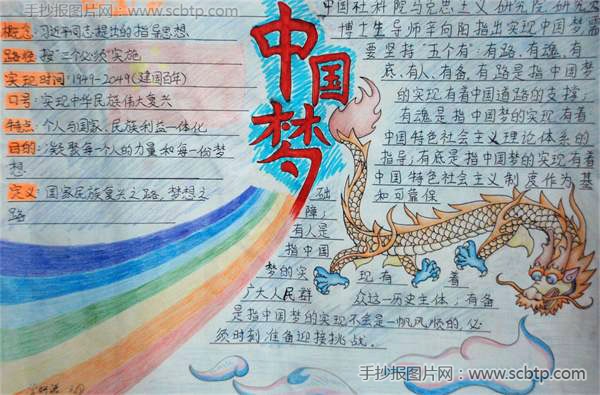 手抄报图片网：www.scbtp.com
概念：习近平同志提出的指导思想
路线：按"三个必须"实施
实现时间：1949-2049(建国百年)
口号：实现中华民族伟大复兴
特点：个人与国家、民族利益一体化
目的：凝聚每一个人的力量和每一份梦
想
定义：国家民族复兴之路，梦想之
路
中国梦
中国社科院马克思主义研究院研究员
博士生导师辛向阳指出实现中国梦需
要坚持"五个有：有路，有魂，有
底，有人，有备，有路是指中国梦
的实现有着中国道路的支撑；
有魂是指中国梦的实现有着
中国特色社会主义理论体系的
指导；有底是指中国梦的实现有着
中国特色社会主义制度作为基
和可靠保
础
障；
有人是
指中国
梦的实现有着
广大人民群众这一历史主体；有备
是指中国梦的实现不会是一帆风顺的，必
须时刻准备迎接挑战．
手抄报图片网：www.scbtp.com